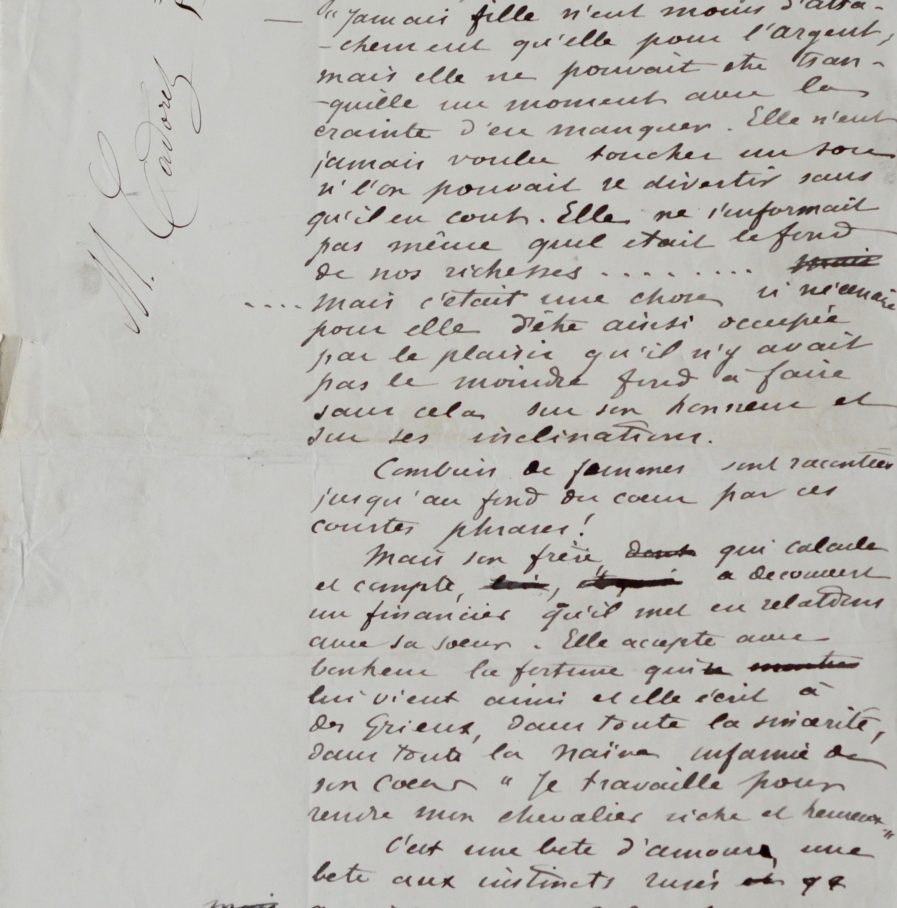 M. Cadoret
— "Jamais fille n'eut moins d'atta-
-chement qu'elle pour l'argent,
mais elle ne pouvait etre tran-
-quille un moment avec la
crainte d'en manquer. Elle n'eut
jamais voulu toucher un sou
si l'on pouvait se divertir sans
qu'il en cout. Elle ne s'informait
pas même quel etait le fond
de nos richesses ......... mais
.... mais c'était une chose si nécessaire
pour elle d'être ainsi occupée
par le plaisir qu'il n'y avait
pas le moindre fond à faire
sans cela sur son honneur et
sur ses inclinations.
Combien de femmes sont racontées
jusqu'au fond du cœur par ces
courtes phrases!
Mais son frère, dont qui calcule
et compte, lui, a decouvert
un financier qu'il met en relations
avec sa soeur. Elle accepte avec
bonheur la fortune qui
lui vient ainsi et elle écrit à
des Grieux, dans toute la sincérité,
dans toute la naïve infamie de
son Coeur "Je travaille pour
rendre mon chevalier riche et heureux"
C'est une bete d'amour, une
bete aux instincts rusés et
mais